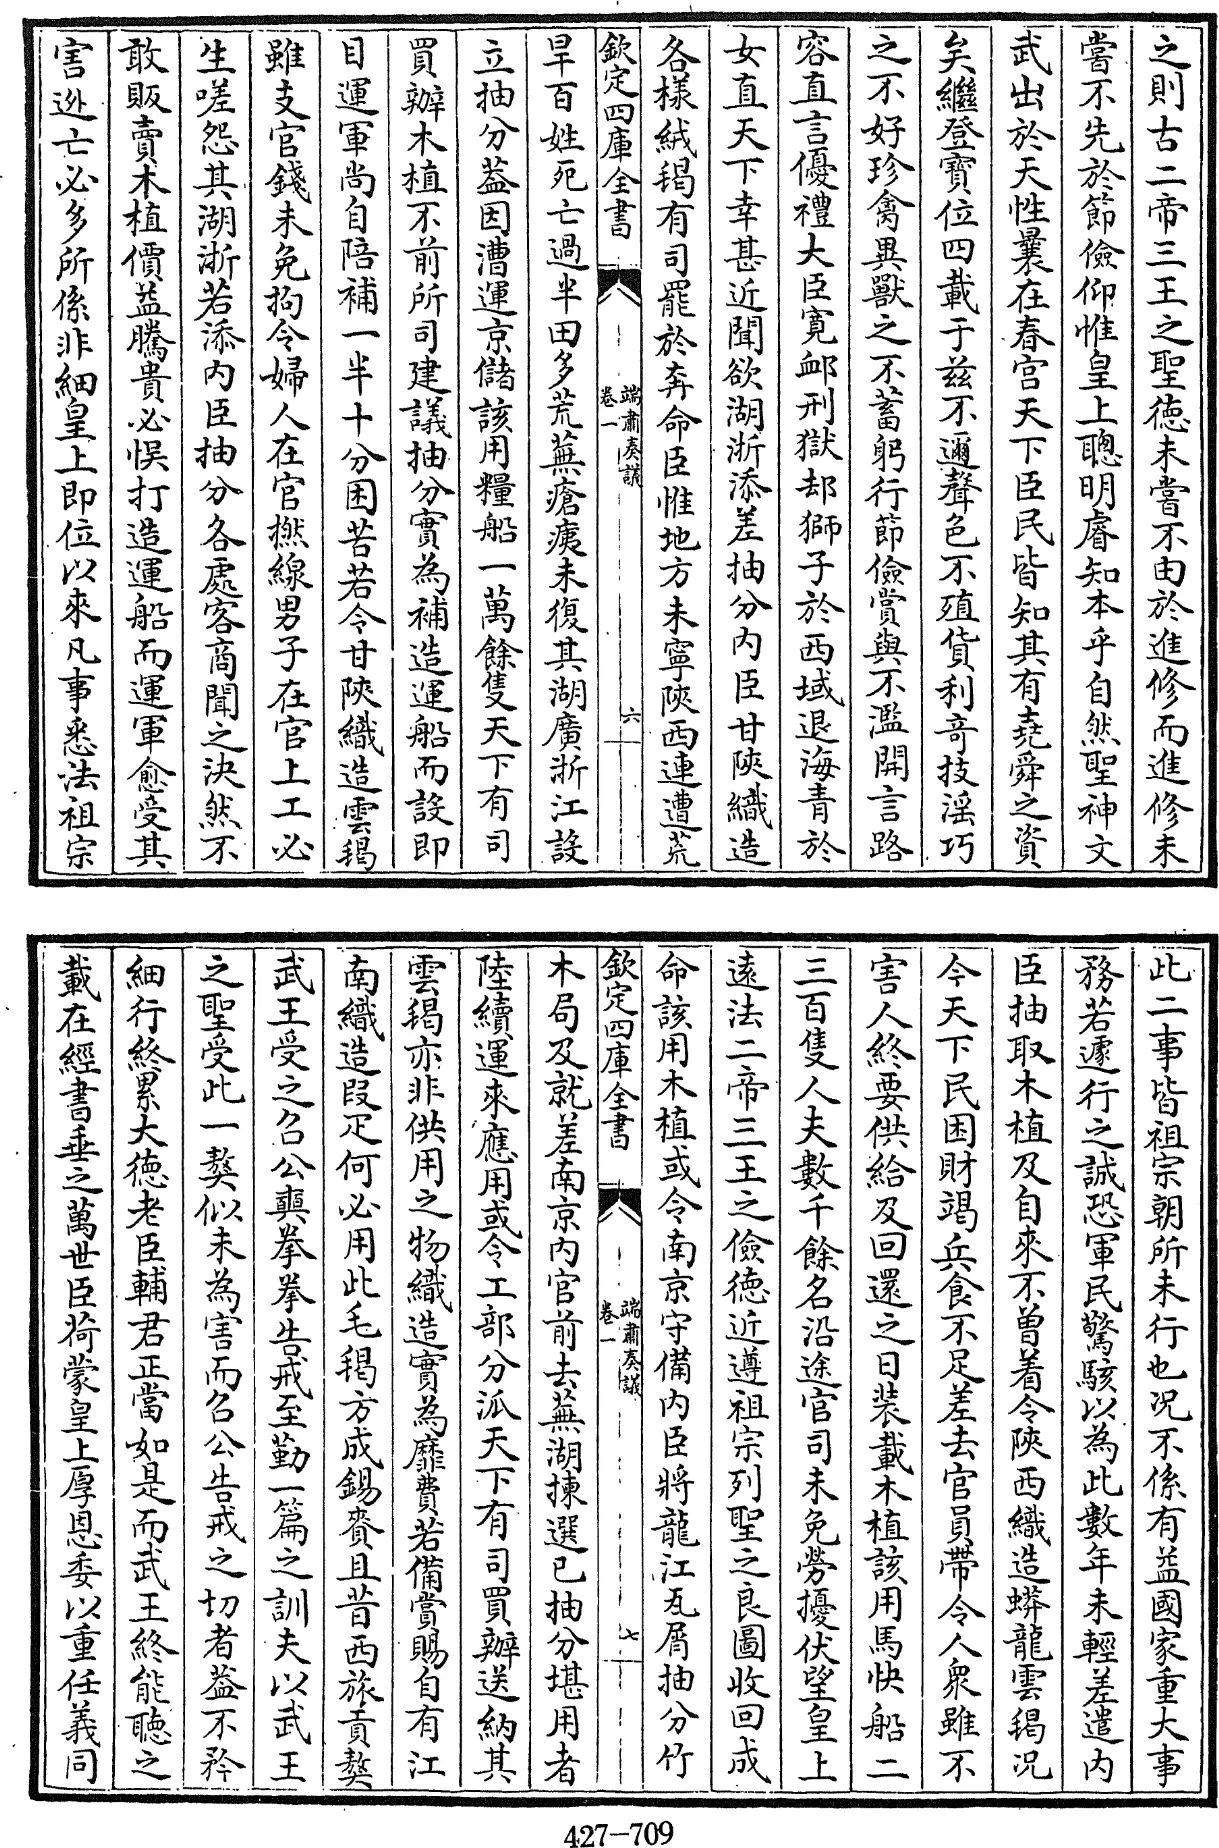 之則古二帝三王之聖徳未嘗不由於進修而進修未
嘗不先於節儉仰惟皇上聰明睿知本乎自然聖神文
武出於天性曩在春宮天下臣民皆知其有堯舜之資
矣繼登寳位四載于兹不邇聲色不殖貨利竒技淫巧
之不好珍禽異獸之不蓄躬行節儉賞與不濫開言路
容直言優禮大臣寛邺刑獄却獅子於西域退海青於
女直天下幸甚近聞欲湖浙添差抽分内臣甘陜織造
各様絨毼有司罷於奔命臣惟地方未寧陜西連遭荒
欽定四庫全書
端肅奏議
卷一
六
旱百姓死亡過半田多荒蕪瘡痍未復其湖廣浙江設
立抽分葢因漕運京儲該用糧船一萬餘隻天下有司
買辦木植不前所司建議抽分實為補造運船而設即
目運軍尚自陪補一半十分困苦若令甘陜織造雲毼
雖支官錢未免拘令婦人在官撚線男子在官上工必
生嗟怨其湖浙若添内臣抽分各處客商聞之決然不
敢販賣木植價益騰貴必悞打造運船而運軍愈受其
害逃亡必多所係非細皇上即位以來凡事悉法祖宗
此二事皆祖宗朝所未行也况不係有益國家重大事
務若遽行之誠恐軍民驚駭以為此數年未輕差遣内
臣抽取木植及自來不曽着令陜西織造蟒龍雲毼况
今天下民困財竭兵食不足差去官員帶令人衆雖不
害人終要供給及回還之日装載木植該用馬快船二
三百隻人夫數千餘名沿途官司未免勞擾伏望皇上
逺法二帝三王之儉徳近遵祖宗列聖之良圖收回成
命該用木植或令南京守備内臣將龍江瓦屑抽分竹
欽定四庫全書
端肅奏議
卷一
七
木局及就差南京内官前去蕪湖揀選已抽分堪用者
陸續運來應用或令工部分派天下有司買辦送納其
雲毼亦非供用之物織造實為靡費若備賞賜自有江
南織造叚疋何必用此毛毼方成錫賚且昔西旅貢獒
武王受之召公奭拳拳告戒至勤一篇之訓夫以武王
之聖受此一獒似未為害而召公告戒之切者葢不矜
細行終累大徳老臣輔君正當如是而武王終能聴之
載在經書垂之萬世臣荷蒙皇上厚恩委以重任義同
427-709